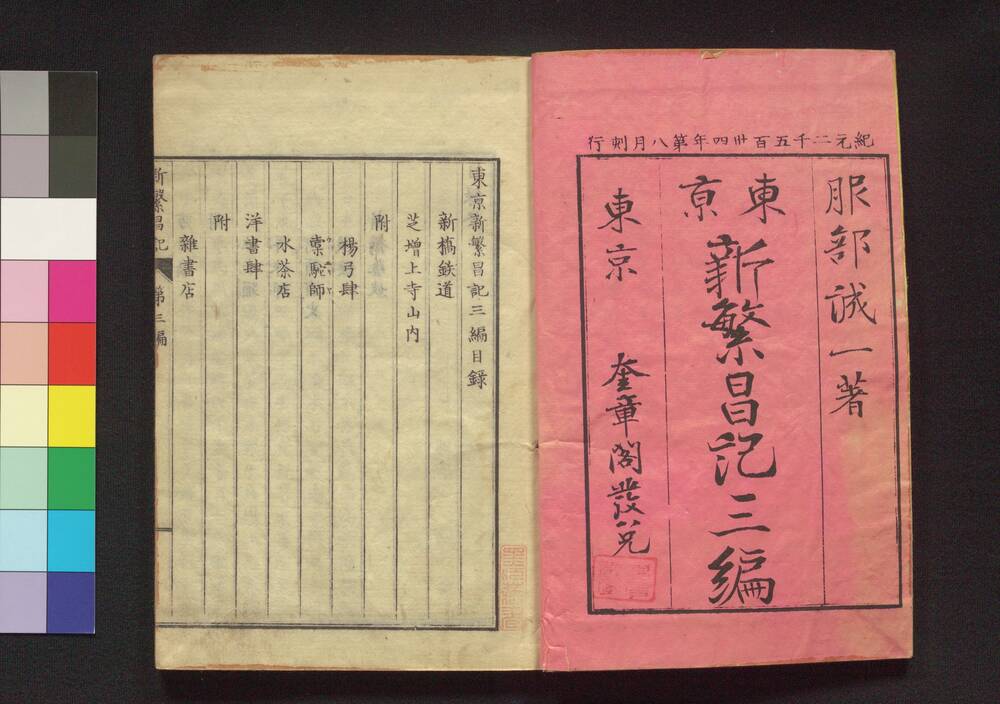 紀元二千五百卅四年第八月刺行
服部誠一著
東京
新繁昌記三編
東京 奎章閣發兌
東京新繁昌記三編目録
新橋鉄道
芝增上寺山内
附
楊弓肆
槖駝師
水茶店
洋書肆
附
雜書店
新繁昌記 第三編